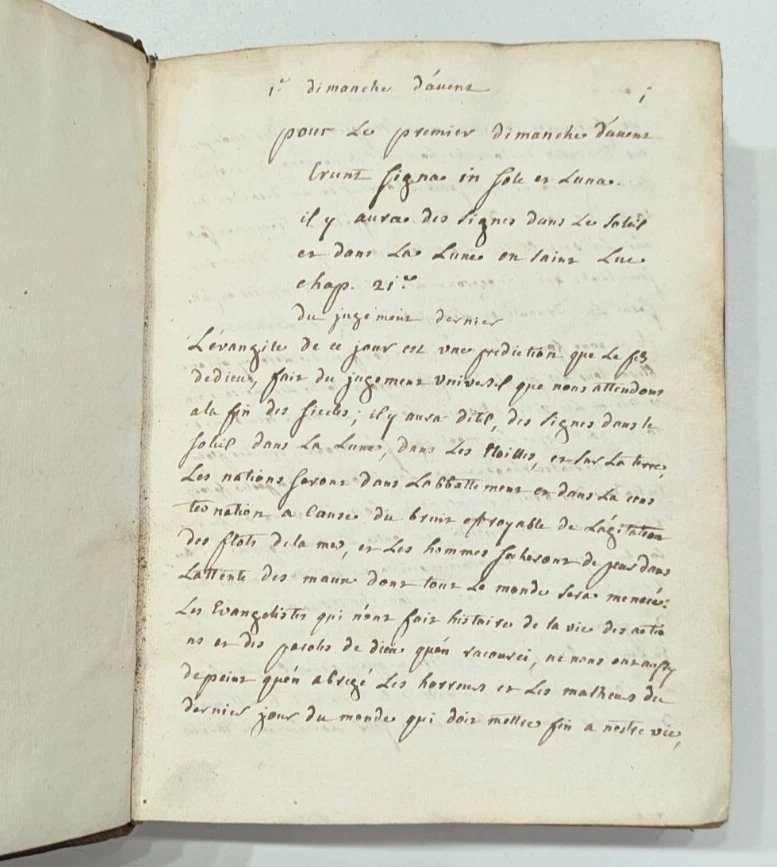 1.er dimanche d'avent
1
pour Le premier dimanche d'avent
Erunt signa in sole et Luna.
il y aura des signes dans Le soleil
et dans La Lune en saint Luc
chap. 21.e
du jugement dernier
L'évangile de ce jour est une prediction que Le fils
dedieu, fait du jugement universel que nous attendons
ala fin des siecles; il y aura ditil, des signes dans le
soleil dans La Lune, dans Les Etoilles, et sur La terre,
Les nations seront dans Labbattement et dans La cons
ternation a Cause du bruit effroyable de L'agitation
des flots dela mer, et Les hommes secheront de peur dans
Lattente des maux dont tout Le monde sera menacé.
Les Evangelistes qui n'ont fait histoire de la vie des actio
ns et des paroles de dieu qu'en racourci, ne nous ont aussy
depeint qu'en abregé Les horreurs et Les malheurs du
dernier jour du monde qui doit mettre fin a nostre vie,